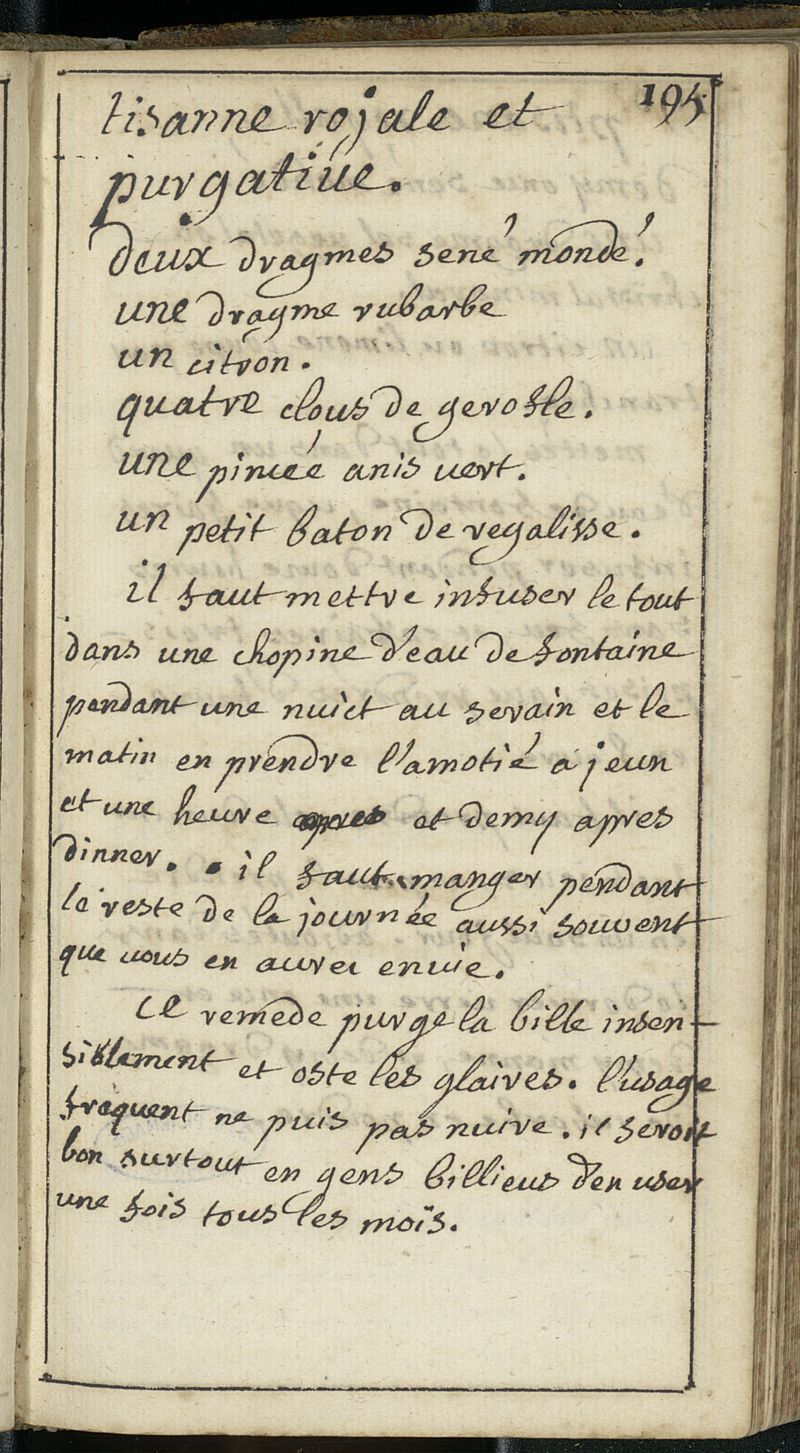 195
tisanne rojale et
purgatiue.
deux dragmes sené mondé.
une dragme rubarbe
un citron.
quatre clous de gerofle.
une pincée anis vert.
un petit baton de regalisse.
il faut mettre infuser le tout
dans une chopine d'eau de fontaine
pendant une nuict au serain et le
matin en prendre l'amotié a jeun
et une heure apres et demy apres
dinner. il faut manger pendant
le reste de la journée aussi souvent
que vous en aurez envie.
ce remede purge la bille insen-
siblement et oste les glaires. l'usage
frequent ne puis pas nuire. il seroit
bon surtout en gens billieus d'en user
une fois tous les mois.